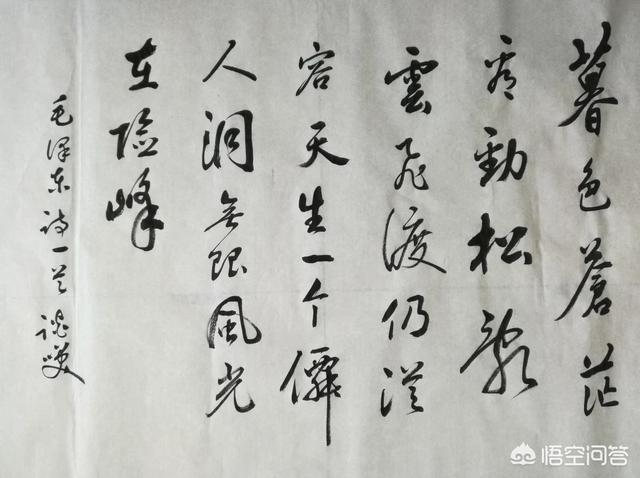 暮色蒼茫
看勁松亂
雲飛渡仍從
容天生一个僊
人洞無限風光
在險峰
毛澤东诗一首
悟空问答